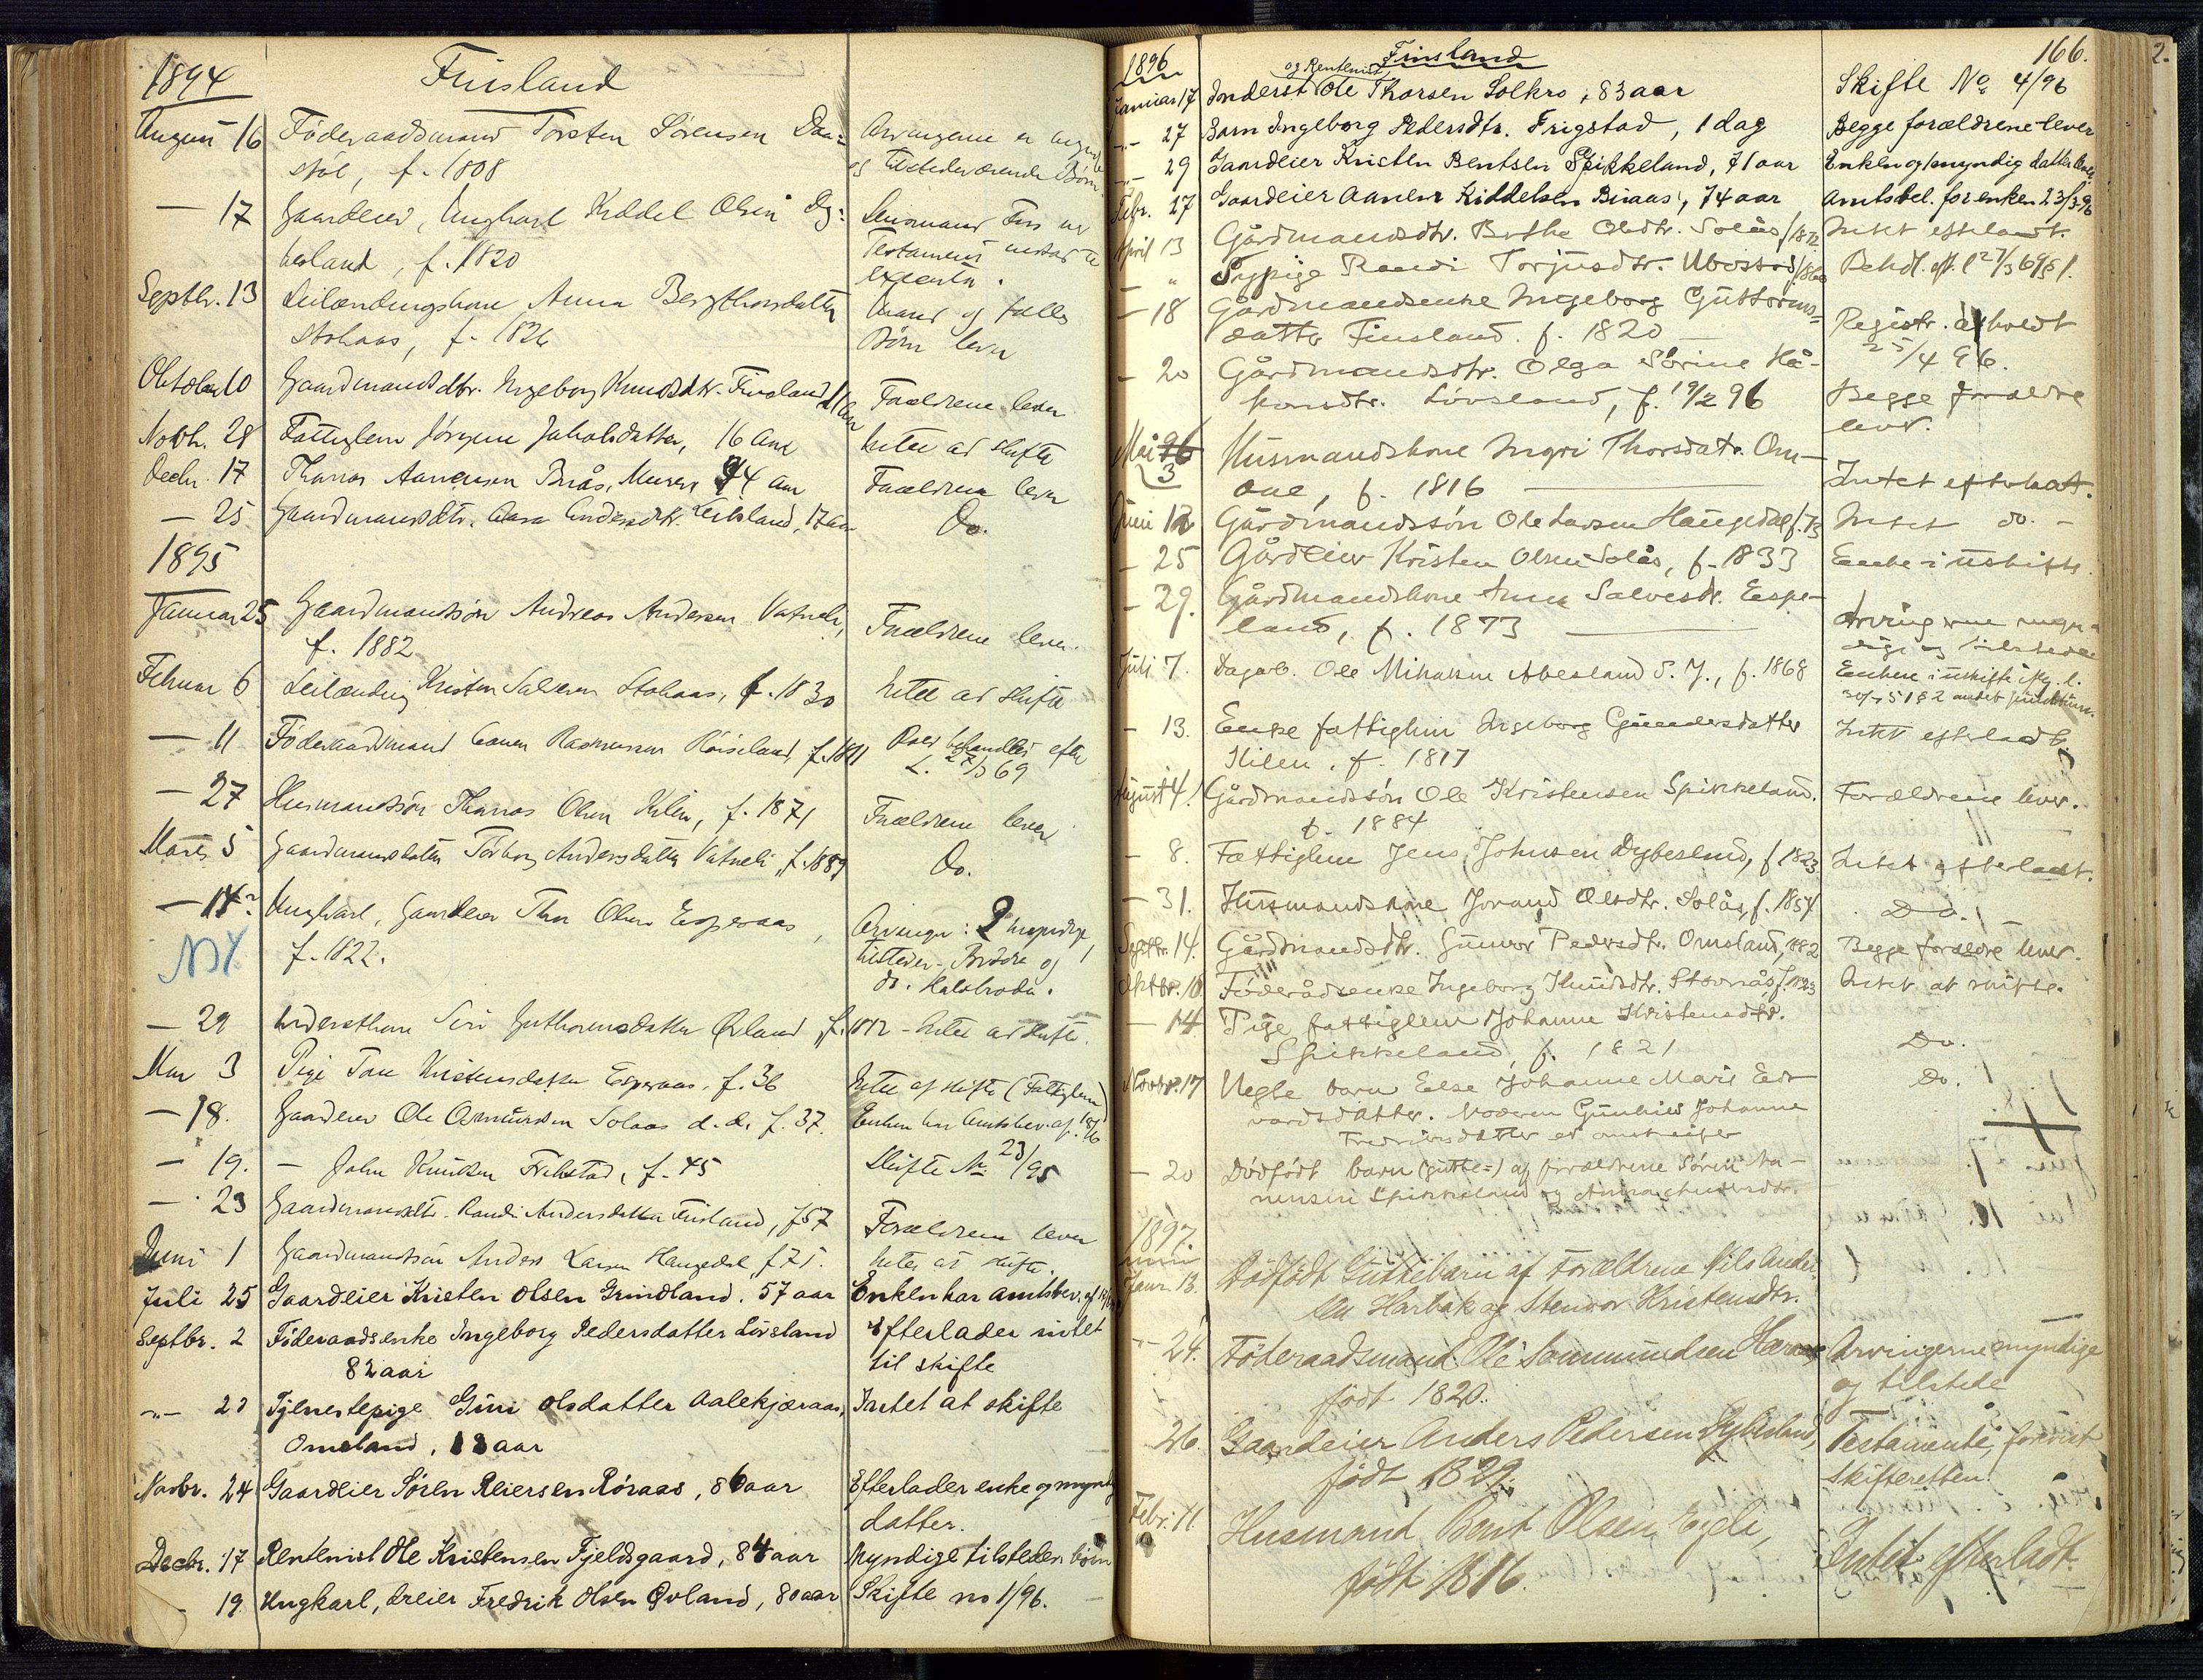 1894 Finsland
August 16 Föderaadsmand Torsten Sörensen Dau= Arvingerne er
stöl, f. 1808 og tilstedeværende Börn
— 17 Gaardeier, Ungkarl Keddel Olsen Dy= Lensmand
besland, f. 1820 Testament
Septbr. 13 Leilændingskone Anna Bergthorsdatter Mand og fælles
Stohaas, f. 1826 Börn lever
Oktober 10 Gaardmandsdtr. Ingeborg Knudsdtr. Finsland Forældrene lever
Novbr. 28 Fattiglem Jörgine Jakobsdatter, 16 Aar Intet at skifte
Decbr. 17 Thomas Aanensen Buås, Murer 74 Aar Forældrene lever
— 25 Gaardmandsdtr. Aasa Andersdtr. Leibsland, 17 Aar Do.
1895
Januar 25 Gaardmandssön Andreas Andersen Vatneli, Forældrene lever.
f. 1882
Februar 6 Leilænding Kristen Salvesen Stohaas, f. 1830 Intet at skifte
— 11 Föderaadsmand Gunder Rasmussen Röiseland f. 1811 Boet behandles efter
L. 27/3 69
— 27 Husmandssön Thomas Olsen Kilen, f. 1871 Forældrene lever
Marts 5 Gaardmandsdatter Torborg Andersdatter Vatneli, f. 1889 Do.
— 14 Ungkarl, Gaardeier Thor Olsen Esperaas, Arvinger: 2 myndige,
NY f. 1822. tilstedev. Brödre og
do. Halvbroder.
— 29 Inderstkone Siri Guthormsdatter Övland, f. 1812 - Intet at skifte.
Mai 3 Pige Tone Kristensdatter Esperaas, f. 36 Intet at skifte (Fattiglem)
— 18. Gaardeier Ole Asmundsen Solaas d. æ. f. 37. Enken har Amtsbev. af 18/6
— 19. — John Knudsen Frikstad, f. 45 Skifte No 23/95
— 23 Gaardmandsdtr. Randi Andersdatter Finsland, f 57 Forældrene lever
Juni 1 Gaardmandssön Anders Larsen Haugedal f 75. Intet at skifte.
Juli 25 Gaardeier Kristen Olsen Grindland. 57 aar Enken har amtsbev. af
Septbr. 2 Föderaadsenke Ingeborg Pedersdatter Lövsland Efterlader intet
82 aar til skifte
-"- 23 Tjenestepige Guri Olsdatter Aalekjæraas, Intet at skifte
Omsland, 18 aar
Novbr. 24 Gaardeier Sören Reiersen Röraas, 86 aar Efterlader enke og myndig
datter.
Decbr. 17 Rentenist Ole Kristensen Fjeldsgaard, 84 aar Myndige tilstedev. börn
19 Ungkarl, dreier Fredrik Olsen Övland, 80 aar Skifte no 1/96.
1896 Finsland 166.
og Rentenist
Januar 17 Inderst Ole Thorsen Solkro, 83 aar Skifte No 4/96
-"- 27 Barn Ingeborg Pedersdtr. Frigstad, 1 dag Begge forældrene lever
-"- 29 Gaardeier Kristen Bentsen Spikkeland, 71 aar Enken og 1 myndig datter lever
Febr. 27 Gaardeier Aanen Kiddelsen Buaas, 74 aar Amtsbel. for enken 23/3 96
April 13 Gårdmandsdtr. Berthe Olsdtr. Solås/1872 Intet efterladt.
— " Pige Randi Torjusdtr. Ubostad/1860 Behdl. eft. l 27/3 69 § 1.
— 18 Gårdmandsenke Ingeborg Guttorms=
datter Finsland. f. 1820 — Registr. afholdt
25/4 96.
— 20 Gårdmandsdtr. Olga Sörine Hå-
konsdtr. Lövsland, f. 19/2 96 Begge forældre
lever.
Mai 26 Husmandskone Ingri Thorsdatr. Om-
3 f. 1816 — Intet efterladt.
Juni 12 Gårdmandssön Ole Larsen Haugedal f. 73 Intet do. -
— 25 Gårdeier Kristen Olsen Solås, f. 1833 Enke i uskifte
— 29. Gårdmandskone Anna Salvesdtr. Espe-
land, f. 1873 — Arvingerne myn-
dige og tilstede
Juli 7. Dagarb. Ole Mikalsen Abesland S. J., f. 1868 Enken i uskifte
— 13. Enke fattiglem Ingeborg Gundersdatter Intet efterladt
Kilen. f. 1817
August 4. Gårdmandssön Ole Kristensen Spikkeland. Forældrene lever.
f. 1884
— 8. Fattiglem Jens Johnsen Dybesland, f 1823 Intet efterladt.
— 31. Husmandskone Jorand Olsdtr. Solås, f. 1854 Do.
Septbr. 14. Gårdmandsdtr. Gunvor Pedersdtr. Omsland, 1882 Begge forældre lever.
Oktbr. 10. Föderådsenke Ingeborg Knudsdtr. Stovnås, f. 1823 Intet at skifte.
— 14 Pige fattiglem Johanne Kristensdtr.
Spikkeland, f. 1821 Do.
Novbr. 17 Uegte barn Else Johanne Marie Ed- Do.
vardsdatter. Moderen Gunhild Johanne
Fredriksdatter er omstreifer
— 20 Dödfödt barn (gutte=) af forældrene Sören Aa-
nensen Spikkeland og Anna
1897.
Janr. 13. Dödfödt Guttebarn af Forældrene Nils Ander-
sen Harbak og Stenvor Kristensdtr.
-"- 24. Föderaadsmand Ole Sammundsen Arvingerne myndige
födt 1820. og tilstede
26. Gaardeier Anders Pedersen Dybesland, Testamente, forevist
födt 1829. Skifteretten
Febr. 11. Husmand Bent Olsen Egeli, Intet efterladt.
födt 1816.